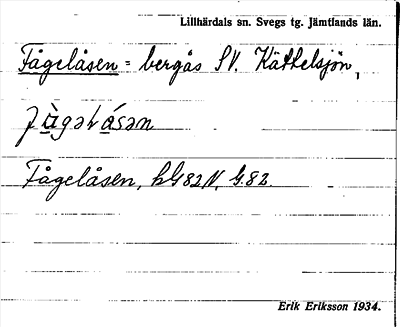 Lillhärdals sn. Svegs tg. Jämtlands län.
Fågelåsen = bergås SV. Käthelsjön,
Fågelåsen, hG82N, G.82
Erik Eriksson 1934.